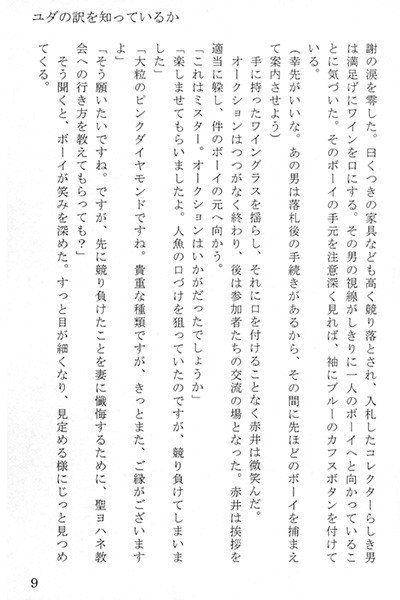 ユダの訳を知っているか
謝の涙を零した。曰くつきの家具なども高く競り落とされ、入札したコレクターらしき男
は満足げにワインを口にする。その男の視線がしきりに一人のボーイへと向かっているこ
とに気づいた。そのボーイの手元を注意深く見れば、袖にブルーのカフスボタンを付けて
いる。
（幸先がいいな。あの男は落札後の手続きがあるから、その間に先ほどのボーイを捕まえ
て案内させよう）
手に持ったワイングラスを揺らし、それに口を付けることなく赤井は微笑んだ。
オークションはつつがなく終わり、後は参加者たちの交流の場となった。赤井は挨拶を
適当に躱し、件のボーイの元へ向かう。
「これはミスター。オークションはいかがだったでしょうか」
「楽しませてもらいましたよ。人魚の口づけを狙っていたのですが、競り負けてしまいま
した」
「大粒のピンクダイヤモンドですね。貴重な種類ですが、きっとまた、ご縁がございます
よ」
「そう願いたいですね。ですが、先に競り負けたことを妻に懺悔するために、聖ヨハネ教
会への行き方を教えてもらっても？」
そう聞くと、ボーイが笑みを深めた。すっと目が細くなり、見定める様にじっと見つめ
てくる。
9